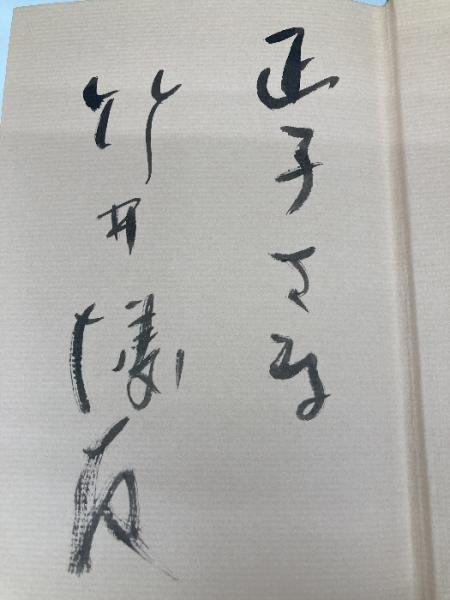 正子さま
竹井博友